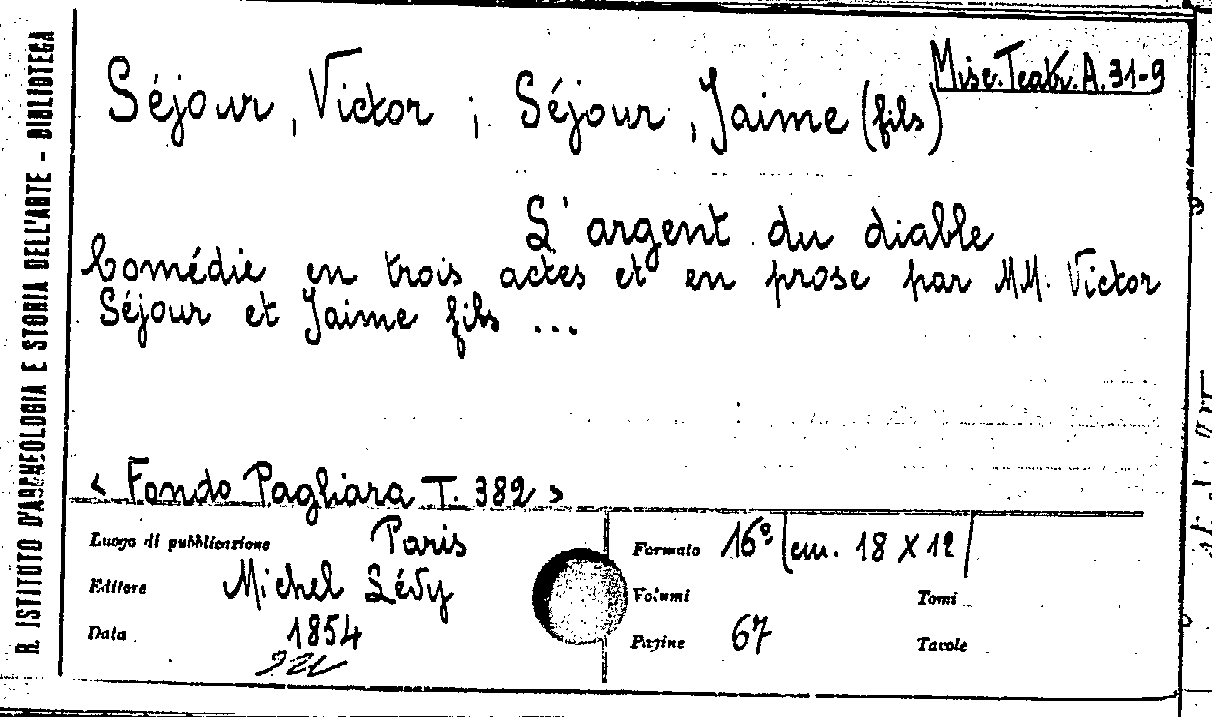 R. ISTITUTO D'ARCHEOLOGIA E STORIA DELL'ARTE - BIBLIOTECA
Misc. Teatr. A. 31-9
Séjour, Victor ; Séjour, Jaime (fils)
L'argent du diable
Comédie en trois actes et en prose par MM. Victor
Séjour et Jaime fils ...
< Fondo Pagliara T. 382 >
Luogo di pubblicazione Paris
Editore Michel Lévy
Data 1854
Formato 16° (cm. 18 X 12)
Volumi Tomi
Pagine 67 Tavole